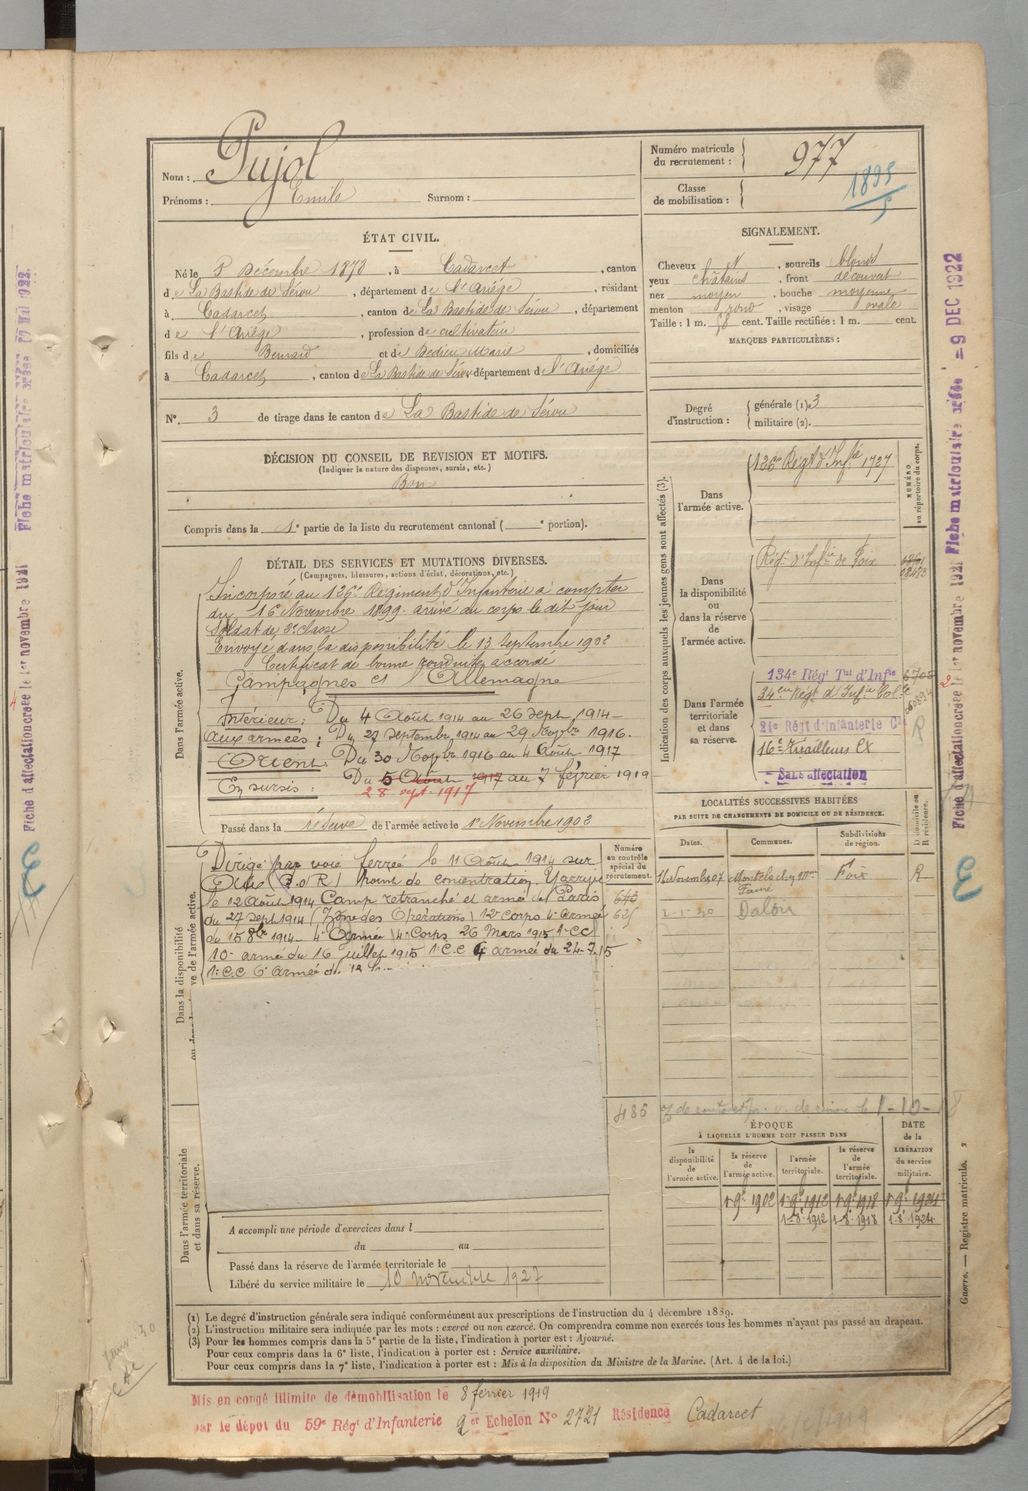 Nom : Pujol
Prénoms : Emile Surnom :
Numéro matricule du recrutement : 977
Classe de mobilisation : 1895
ÉTAT CIVIL.
Né le 8 Décembre 1878, à Cadarcet, canton
de La Bastide de Sérou, département de l'Ariège, résidant
à Cadarcet, canton de La Bastide de Sérou, département
de l'Ariège, profession de cultivateur
fils de Bernard et de Bedieu Marie, domiciliés
à Cadarcet, canton de La Bastide de Sérou département de l'Ariège
N° 3 de tirage dans le canton de La Bastide de Sérou
SIGNALEMENT.
Cheveux , sourcils blonds
yeux châtains, front découvert
nez moyen, bouche moyenne
menton rond, visage ovale
Taille : 1 m. 58 cent. Taille rectifiée : 1 m. cent.
MARQUES PARTICULIÈRES :
Degré d'instruction : générale (1). 3
militaire (2).
DÉCISION DU CONSEIL DE REVISION ET MOTIFS.
(Indiquer la nature des dispenses, sursis, etc.)
Bon
Compris dans la 1e partie de la liste du recrutement cantonal ( e portion).
DÉTAIL DES SERVICES ET MUTATIONS DIVERSES.
(Campagnes, blessures, actions d'éclat, décorations, etc.)
Dans l'armée active.
Incorporé au 136e Régiment d'Infanterie à compter
du 16 Novembre 1899 arrivé au corps le dit jour
Soldat de 2e classe
Envoyé dans la disponibilité le 13 Septembre 1902
Certificat de bonne conduite accordé
Campagnes Ct l'Allemagne
Intérieur : Du 4 Août 1914 au 26 Sept 1914
aux armées : Du 27 Septembre 1914 au 29 Novbre 1916.
Orient. Du 30 Novbre 1916 au 4 Août 1917
En sursis : Du 5 Août 1917 au 7 février 1919
28 sept 1917
Passé dans la réserve de l'armée active le 1er Novembre 1902
Indication des corps auxquels les jeunes gens sont affectés (3).
NUMÉRO au répertoire du corps.
Dans l'armée active.
136e Régt d'Infie 1727
Dans la disponibilité ou dans la réserve de l'armée active.
Régt d'Infie de Foix
Dans l'armée territoriale et dans sa réserve.
134e Régt Tal d'Infie
34eme Régt d'Infie Colle
24e Régt d'Infanterie Cle
R
16e Tirailleurs Ct
Sans affectation
Dans la disponibilité
ou dans la réserve de l'armée active.
Numéro au contrôle spécial du recrutement.
Dirigé par voie ferrée le 11 Août 1914 sur
point de concentration. Y arrivé
le 12 Août 1914 Camp retranché et armée de Paris
du 27 Sept 1914 (Zône des Opérations) 12e Corps 4e Armée
du 15 8bre 1914 4e Armée 4e Corps 26 Mars 1915 1er CC
10e armée du 16 juillet 1915 1er C.C 4 armée du 24-7-15
1er C.C 6e Armée du 12
485
LOCALITÉS SUCCESSIVES HABITÉES
PAR SUITE DE CHANGEMENTS DE DOMICILE OU DE RÉSIDENCE.
Dates. Communes. Subdivisions de région. Domicile ou Résidence.
Foix R
Dalou
ÉPOQUE
À LAQUELLE L'HOMME DOIT PASSER DANS
la disponibilité de l'armée active. la réserve de l'armée active. l'armée territoriale. la réserve de l'armée territoriale.
DATE de la LIBÉRATION du service militaire.
1er 9bre 1902 1er 9bre 1912 1er 9bre 1918 1er 9bre 1924
1-8bre 1912 1-8bre 1918 1-8bre 1924
Dans l'armée territoriale
et dans sa réserve.
A accompli une période d'exercices dans l
du au
Passé dans la réserve de l'armée territoriale le
Libéré du service militaire le 10 novembre 1927
(1) Le degré d'instruction générale sera indiqué conformément aux prescriptions de l'instruction du 4 décembre 1889.
(2) L'instruction militaire sera indiquée par les mots : exercé ou non exercé. On comprendra comme non exercés tous les hommes n'ayant pas passé au drapeau.
(3) Pour les hommes compris dans la 5e partie de la liste, l'indication à porter est : Ajourné.
Pour ceux compris dans la 6e liste, l'indication à porter est : Service auxiliaire.
Pour ceux compris dans la 7e liste, l'indication à porter est : Mis à la disposition du Ministre de la Marine. (Art. 4 de la loi.)
Mis en congé illimité de démobilisation le 8 février 1919
par le dépôt du 59e Régt d'Infanterie 2er Echelon N° 2721 Résidence Cadarcet
Guerre. — Registre matricule. 2
Fiche d'affectation créée le 1er novembre 1921 Fiche matriculaire créée 9 DEC 1922
Fiche d'affectation créée le 1er novembre 1921 Fiche matriculaire créée